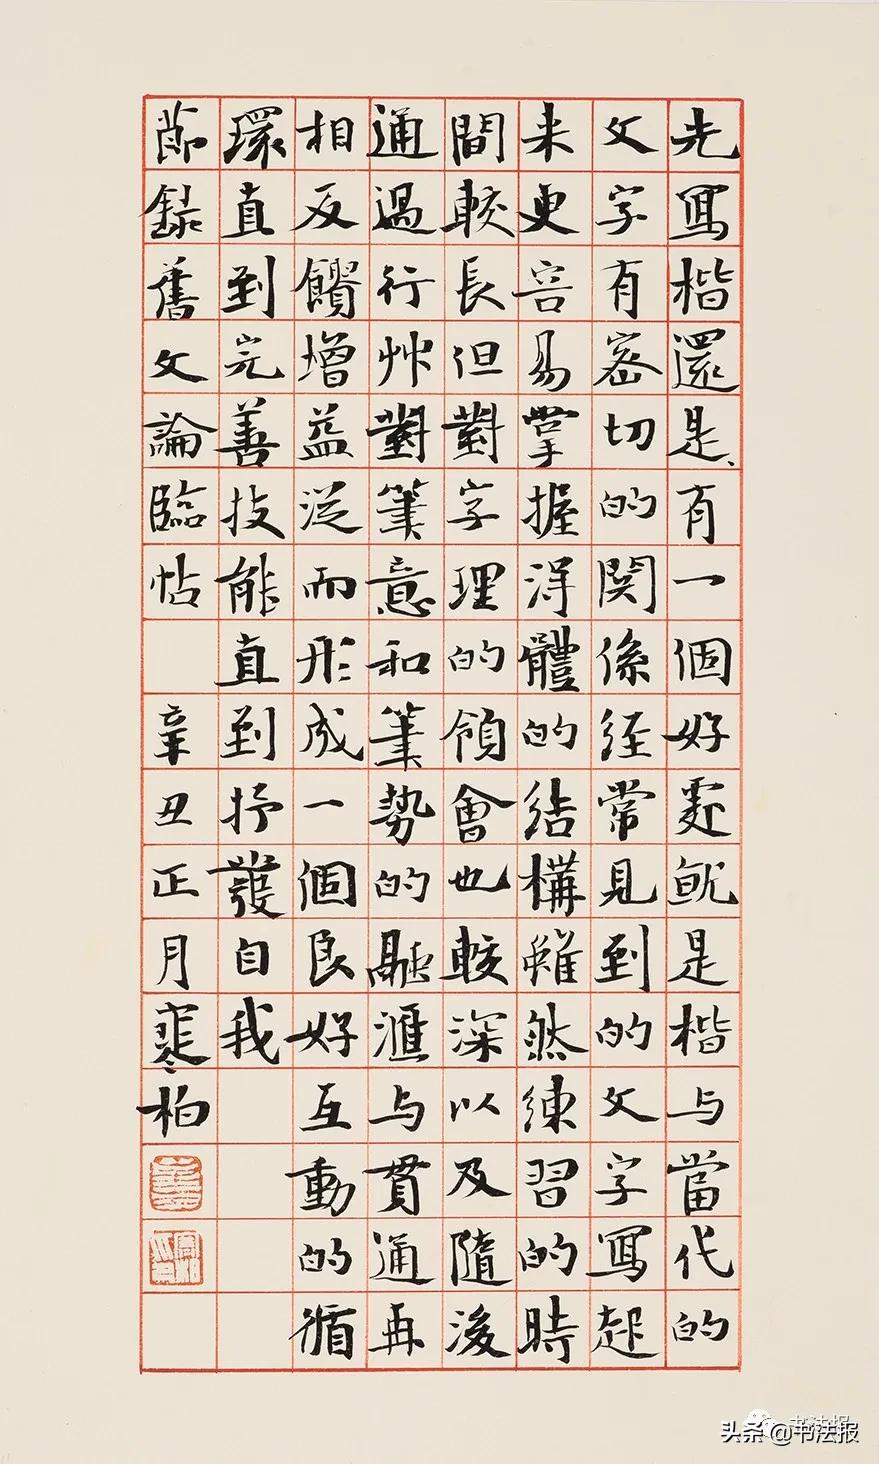 先寫楷還是有一個好處就是楷与當代的
文字有密切的関係經常見到的文字寫起
来更容易掌握得體的結構雖然練習的時
間較長但對字理的領會也較深以及隨後
通過行艸對筆意和筆勢的融滙与貫通再
相反饋增益從而形成一個良好互動的循
環直到完善技能直到抒發自我
節錄舊文論臨帖 辛丑正月寒柏
头条@书法报
书法报